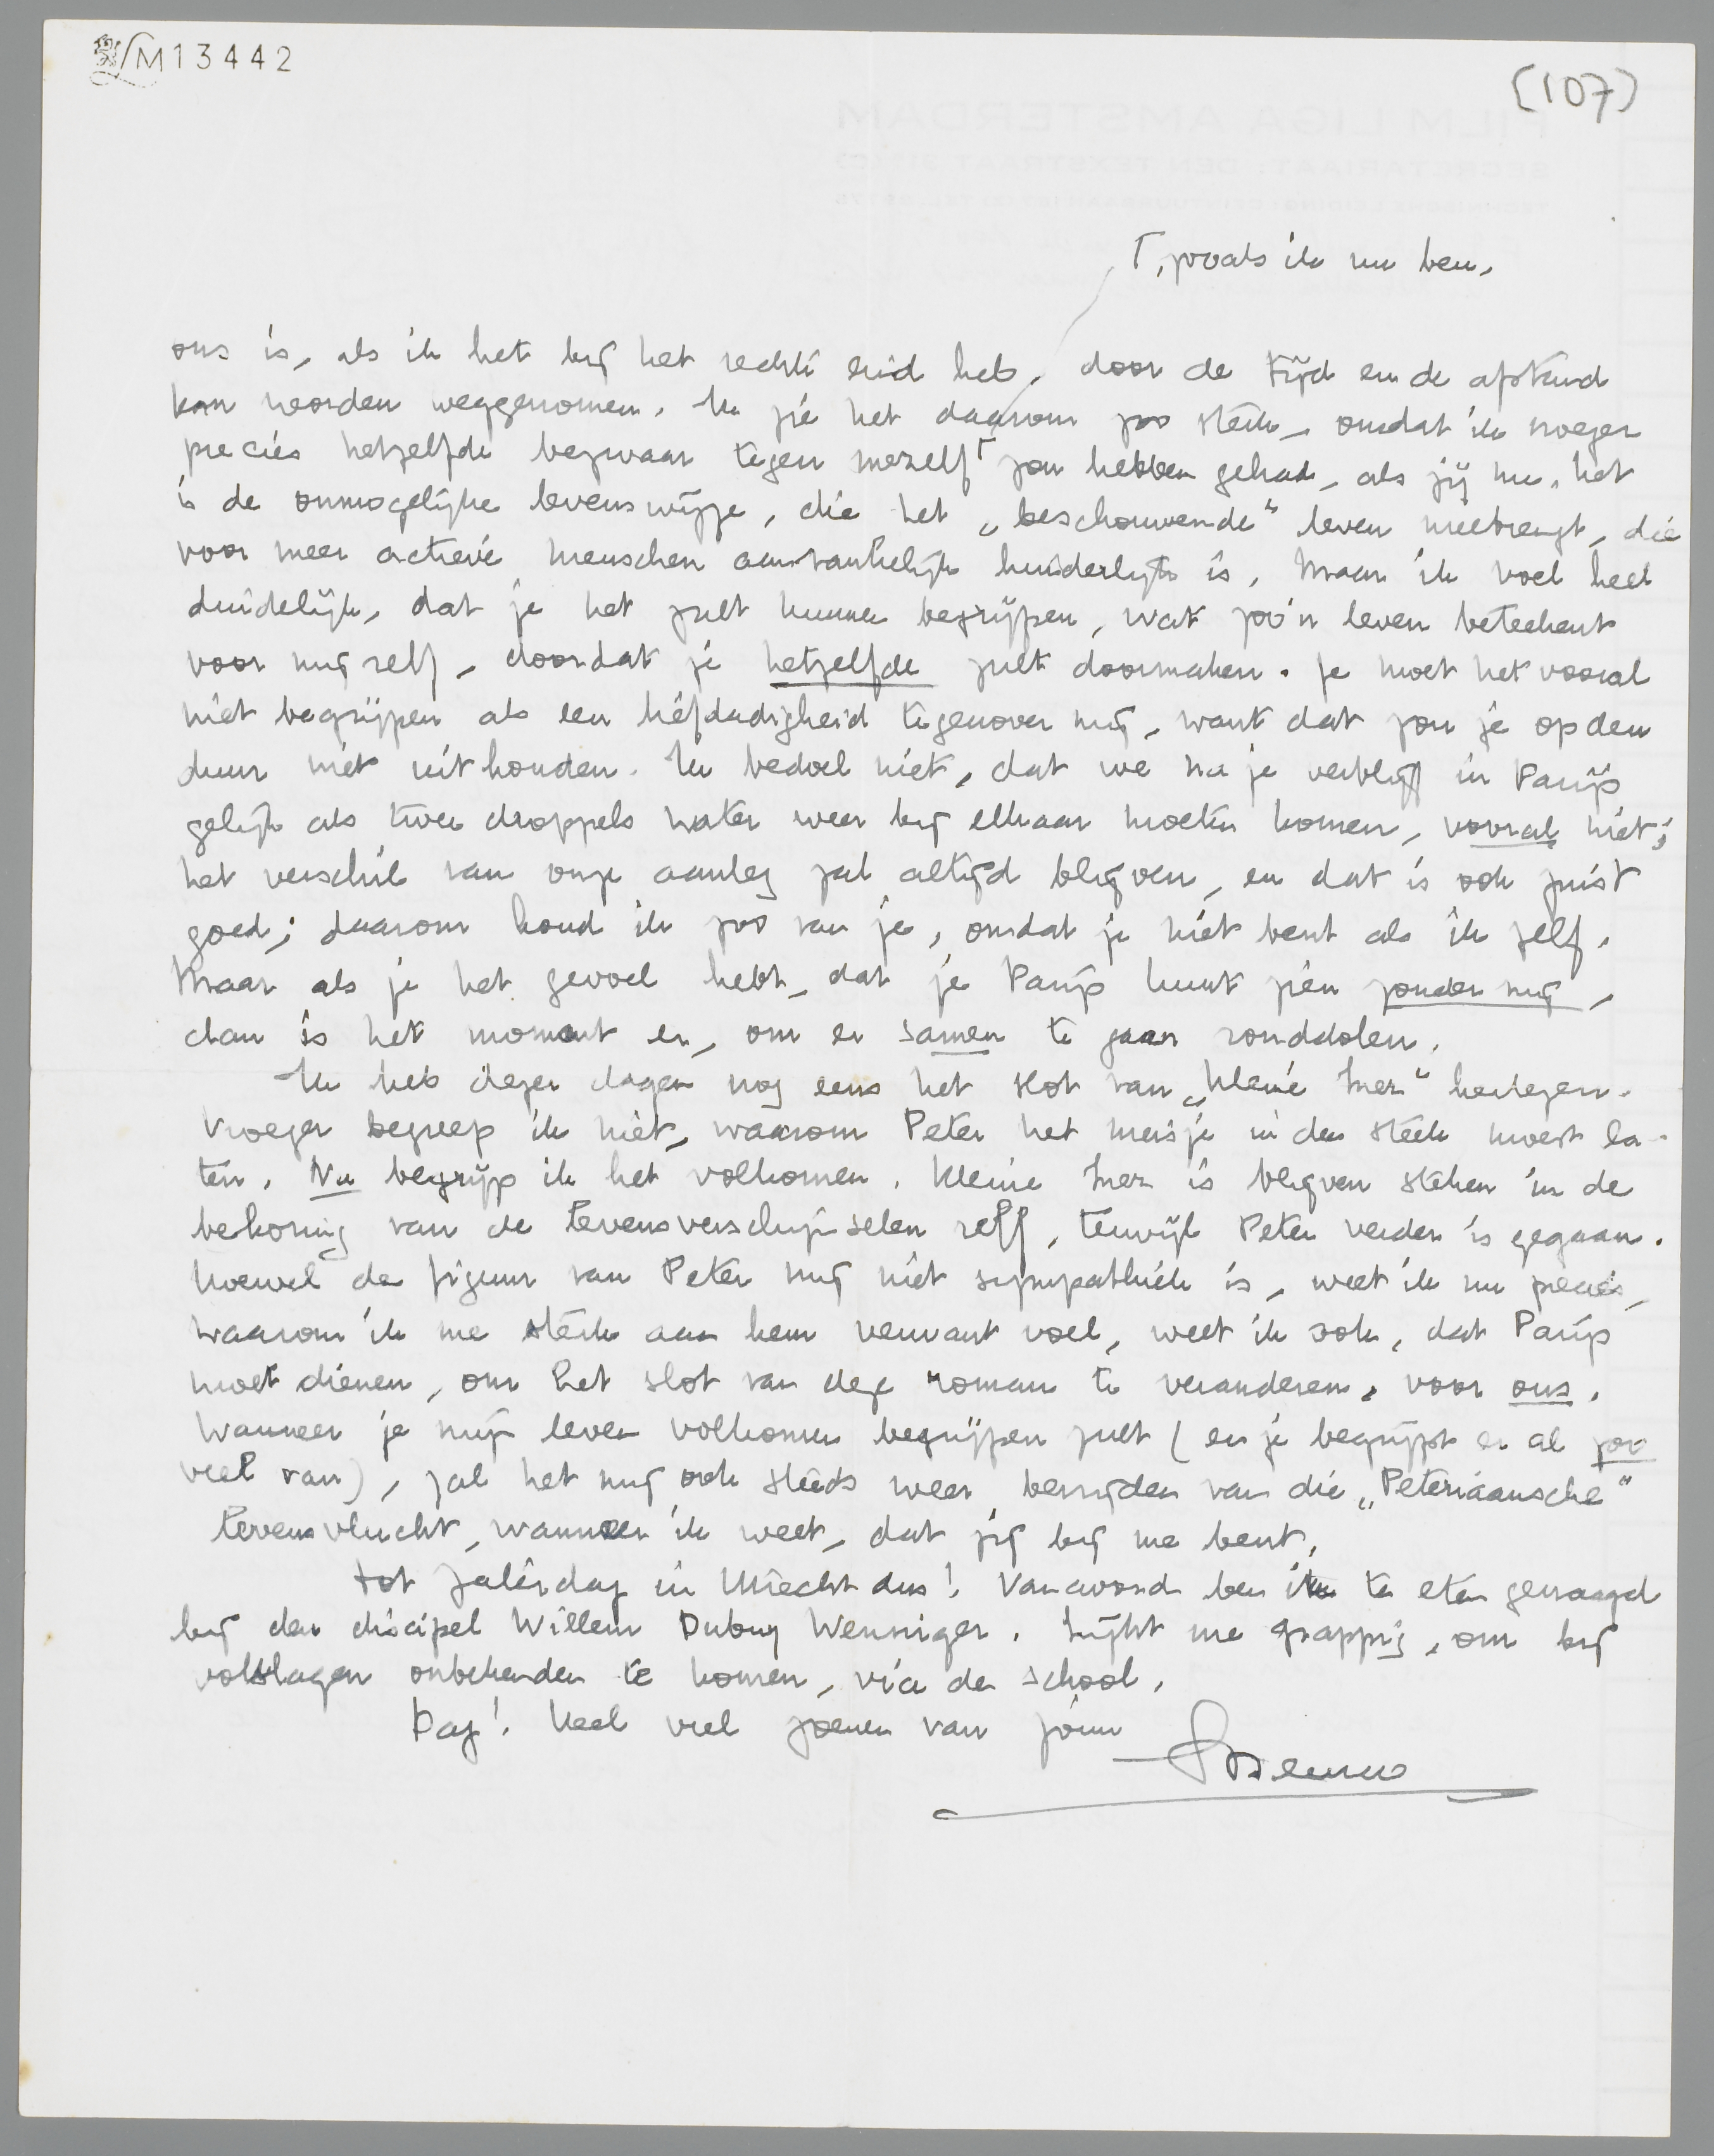 LM13442
(107)
Γ, zooals ik nu ben,
ons is, als ik het bij het rechte eind heb, door de tijd en de afstand
kan worden weggenomen. Ik zie het daarom zoo sterk, omdat ik vroeger
precies hetzelfde bezwaar tegen mezelf Γ zou hebben gehad, als jij nu. het
is de onmogelijke levenswijze, die het „beschouwende" leven meebrengt, die
voor meer actieve menschen aanvankelijk hinderlijk is. Maar ik voel heel
duidelijk, dat je het zult kunnen begrijpen, wat zoo'n leven beteekent
voor mij zelf, doordat je hetzelfde zult doormaken. Je moet het vooral
niet begrijpen als een liefdadigheid tegenover mij, want dat zou je op den
duur niet uithouden. Ik bedoel niet, dat we na je verblijf in Parijs
gelijk als twee droppels water weer bij elkaar moeten komen, vooral niet;
het verschil van onze aanleg zal altijd blijven, en dat is ook juist
goed; daarom houd ik zoo van je, omdat je niet bent als ik zelf.
Maar als je het gevoel hebt, dat je Parijs kunt zien zonder mij,
dan is het moment er, om er samen te gaan ronddolen.
Ik heb dezer dagen nog eens het slot van „Kleine Inez" herlezen.
Vroeger begreep ik niet, waarom Peter het meisje in den steek moest la-
ten. Nu begrijp ik het volkomen. Kleine Inez is blijven steken in de
bekoring van de levensverschijnselen zelf, terwijl Peter verder is gegaan.
Hoewel de figuur van Peter mij niet sympathiek is, weet ik nu precies,
waarom ik me sterk aan hem verwant voel, weet ik ook, dat Parijs
moet dienen, om het slot van deze roman te veranderen, voor ons.
Wanneer je mijn leven volkomen begrijpen zult (en je begrijpt er al zoo
veel van), zal het mij ook steeds weer bevrijden van die „Peteriaansche"
levensvlucht, wanneer ik weet, dat jij bij me bent.
Tot Zaterdag in Utrecht dus! Vanavond ben ik te eten gevraagd
bij den discipel Willem Dubuy Wenniger. Lijkt me grappig, om bij
volslagen onbekenden te komen, via de school.
Dag! Heel veel zoenen van jouw
Menno